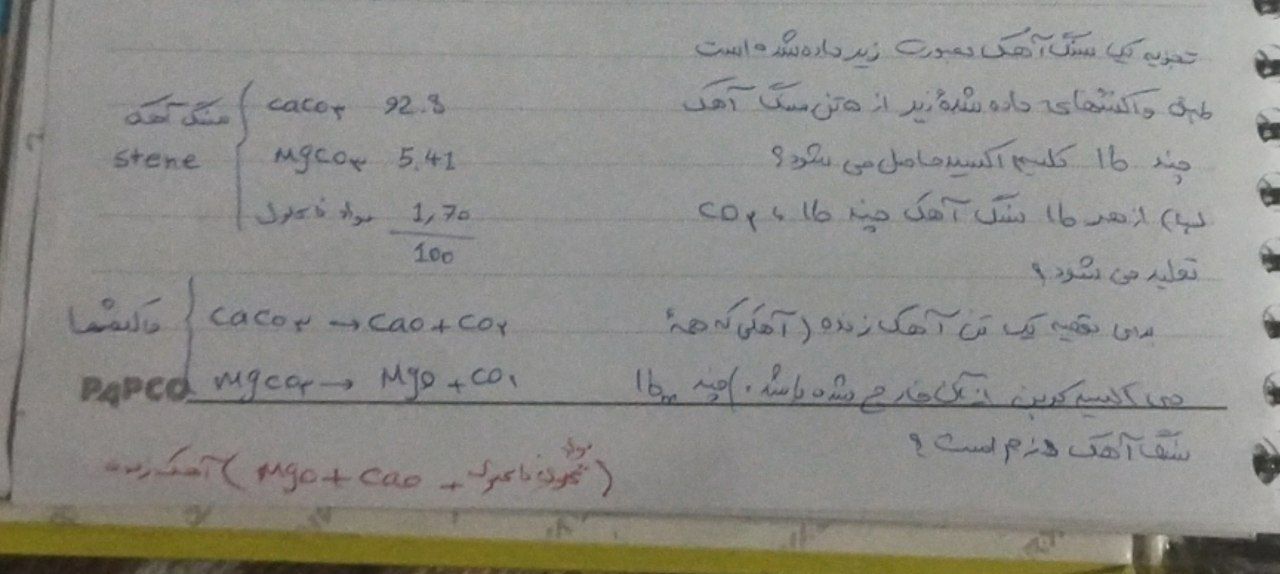 تجزیه یک سنگ آهک بصورت زیر داده شده است
طبق واکنشهای داده شده زیر از ۵ تن سنگ آهک
چند lb کلسیم اکسید حاصل می شود؟
ب) از هر lb سنگ آهک چند lb، CO۲
تولید می شود؟
برای تهیه یک تن آهک زنده (آهکی که همهٔ
دی اکسید کربن از آن خارج شده باشد.) چند lbm
سنگ آهک لازم است؟
سنگ آهک
Stene
CaCO۳ 92.8
MgCO۳ 5.41
مواد نامحلول 1,70
100
واکنشها
CaCO۳ → CaO + CO۲
MgCO۳ → MgO + CO۲
PAPCO
آهک زنده (MgO + CaO + مواد نامحلول)